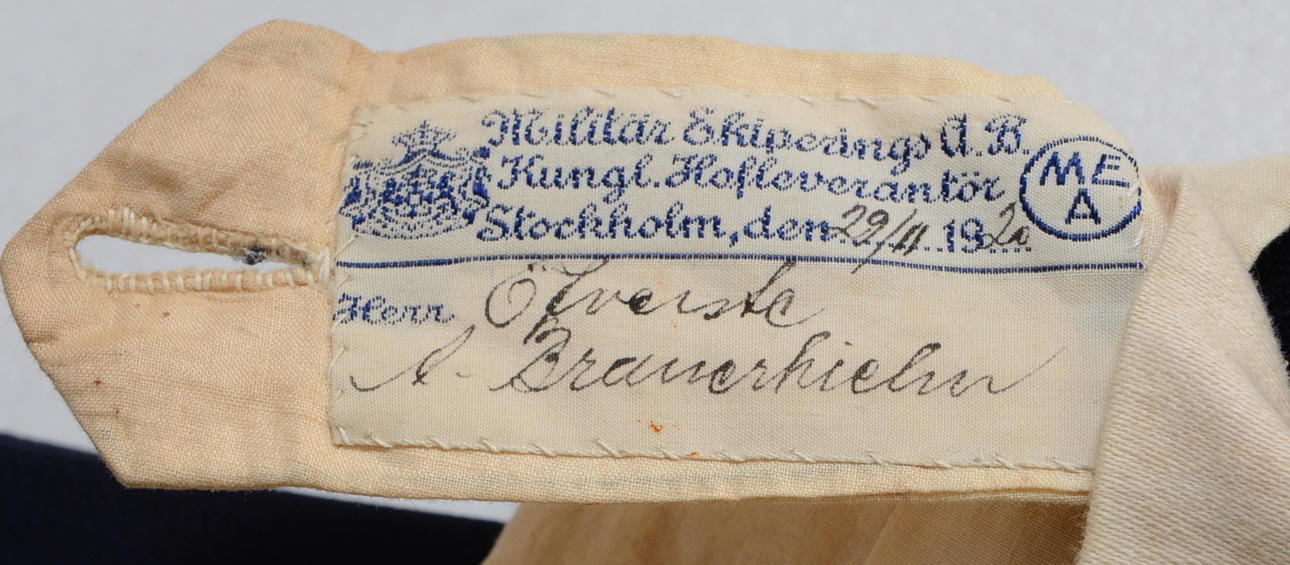 Militär Ekiperings A.B.
Kungl. Hofleverantör
Stockholm, den 29/11 1920
MEA
Herr Öfverste
A. Brauerhielm